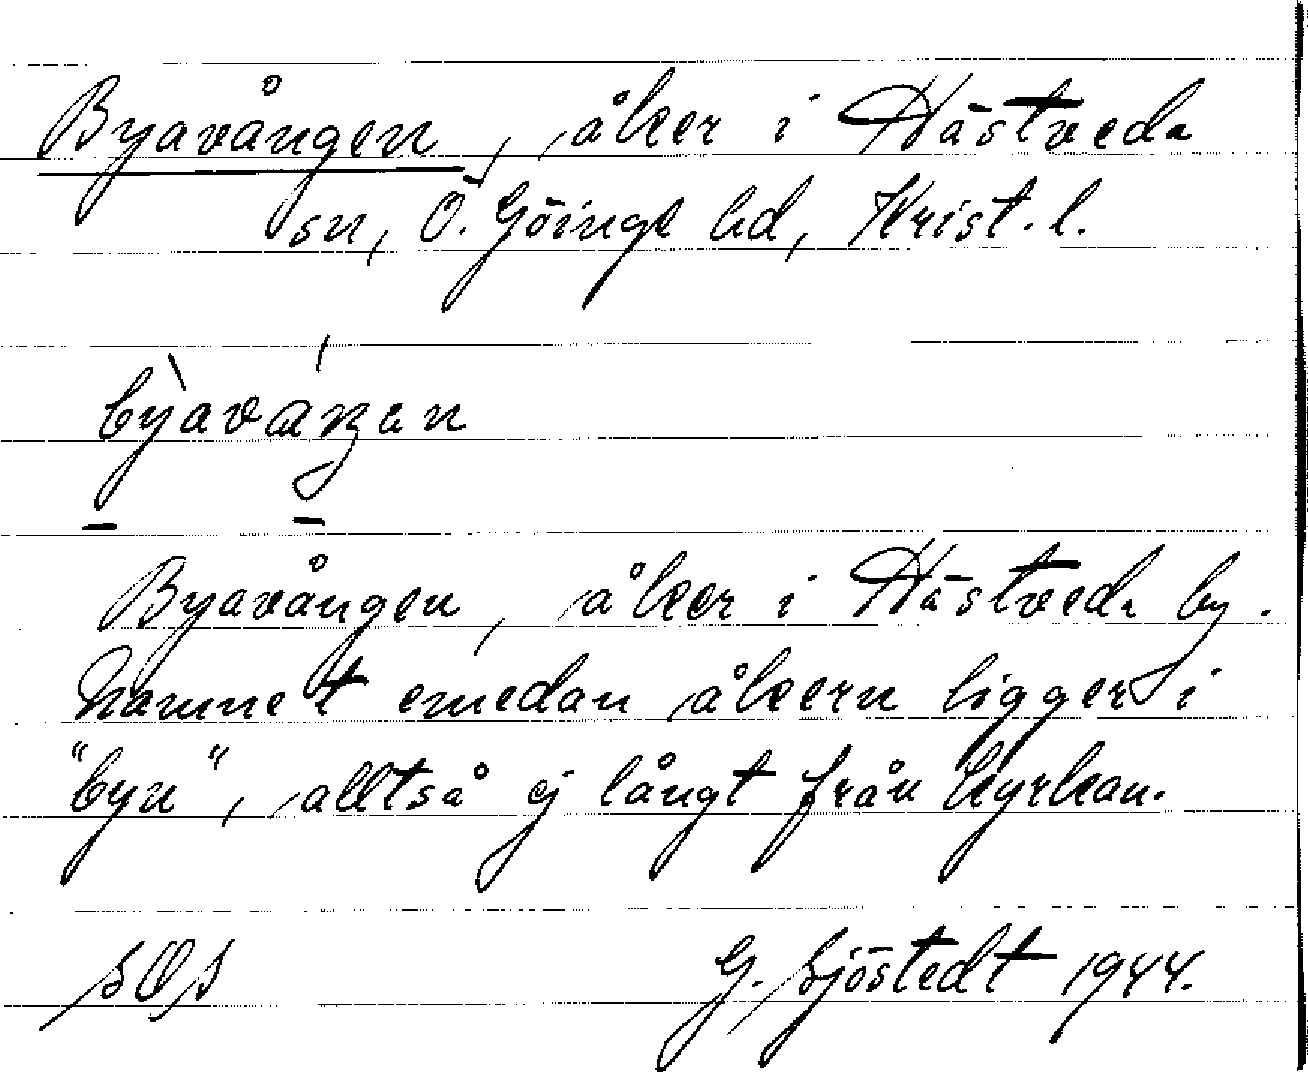 Byavången, åker i Hästveda
sn, Ö. Göinge hd, Krist. l.
bỳaváŋan
Byavången, åker i Hästveda by.
Namnet emedan åkern ligger i
"byn", alltså ej långt från kyrkan.
G. Sjöstedt 1944.